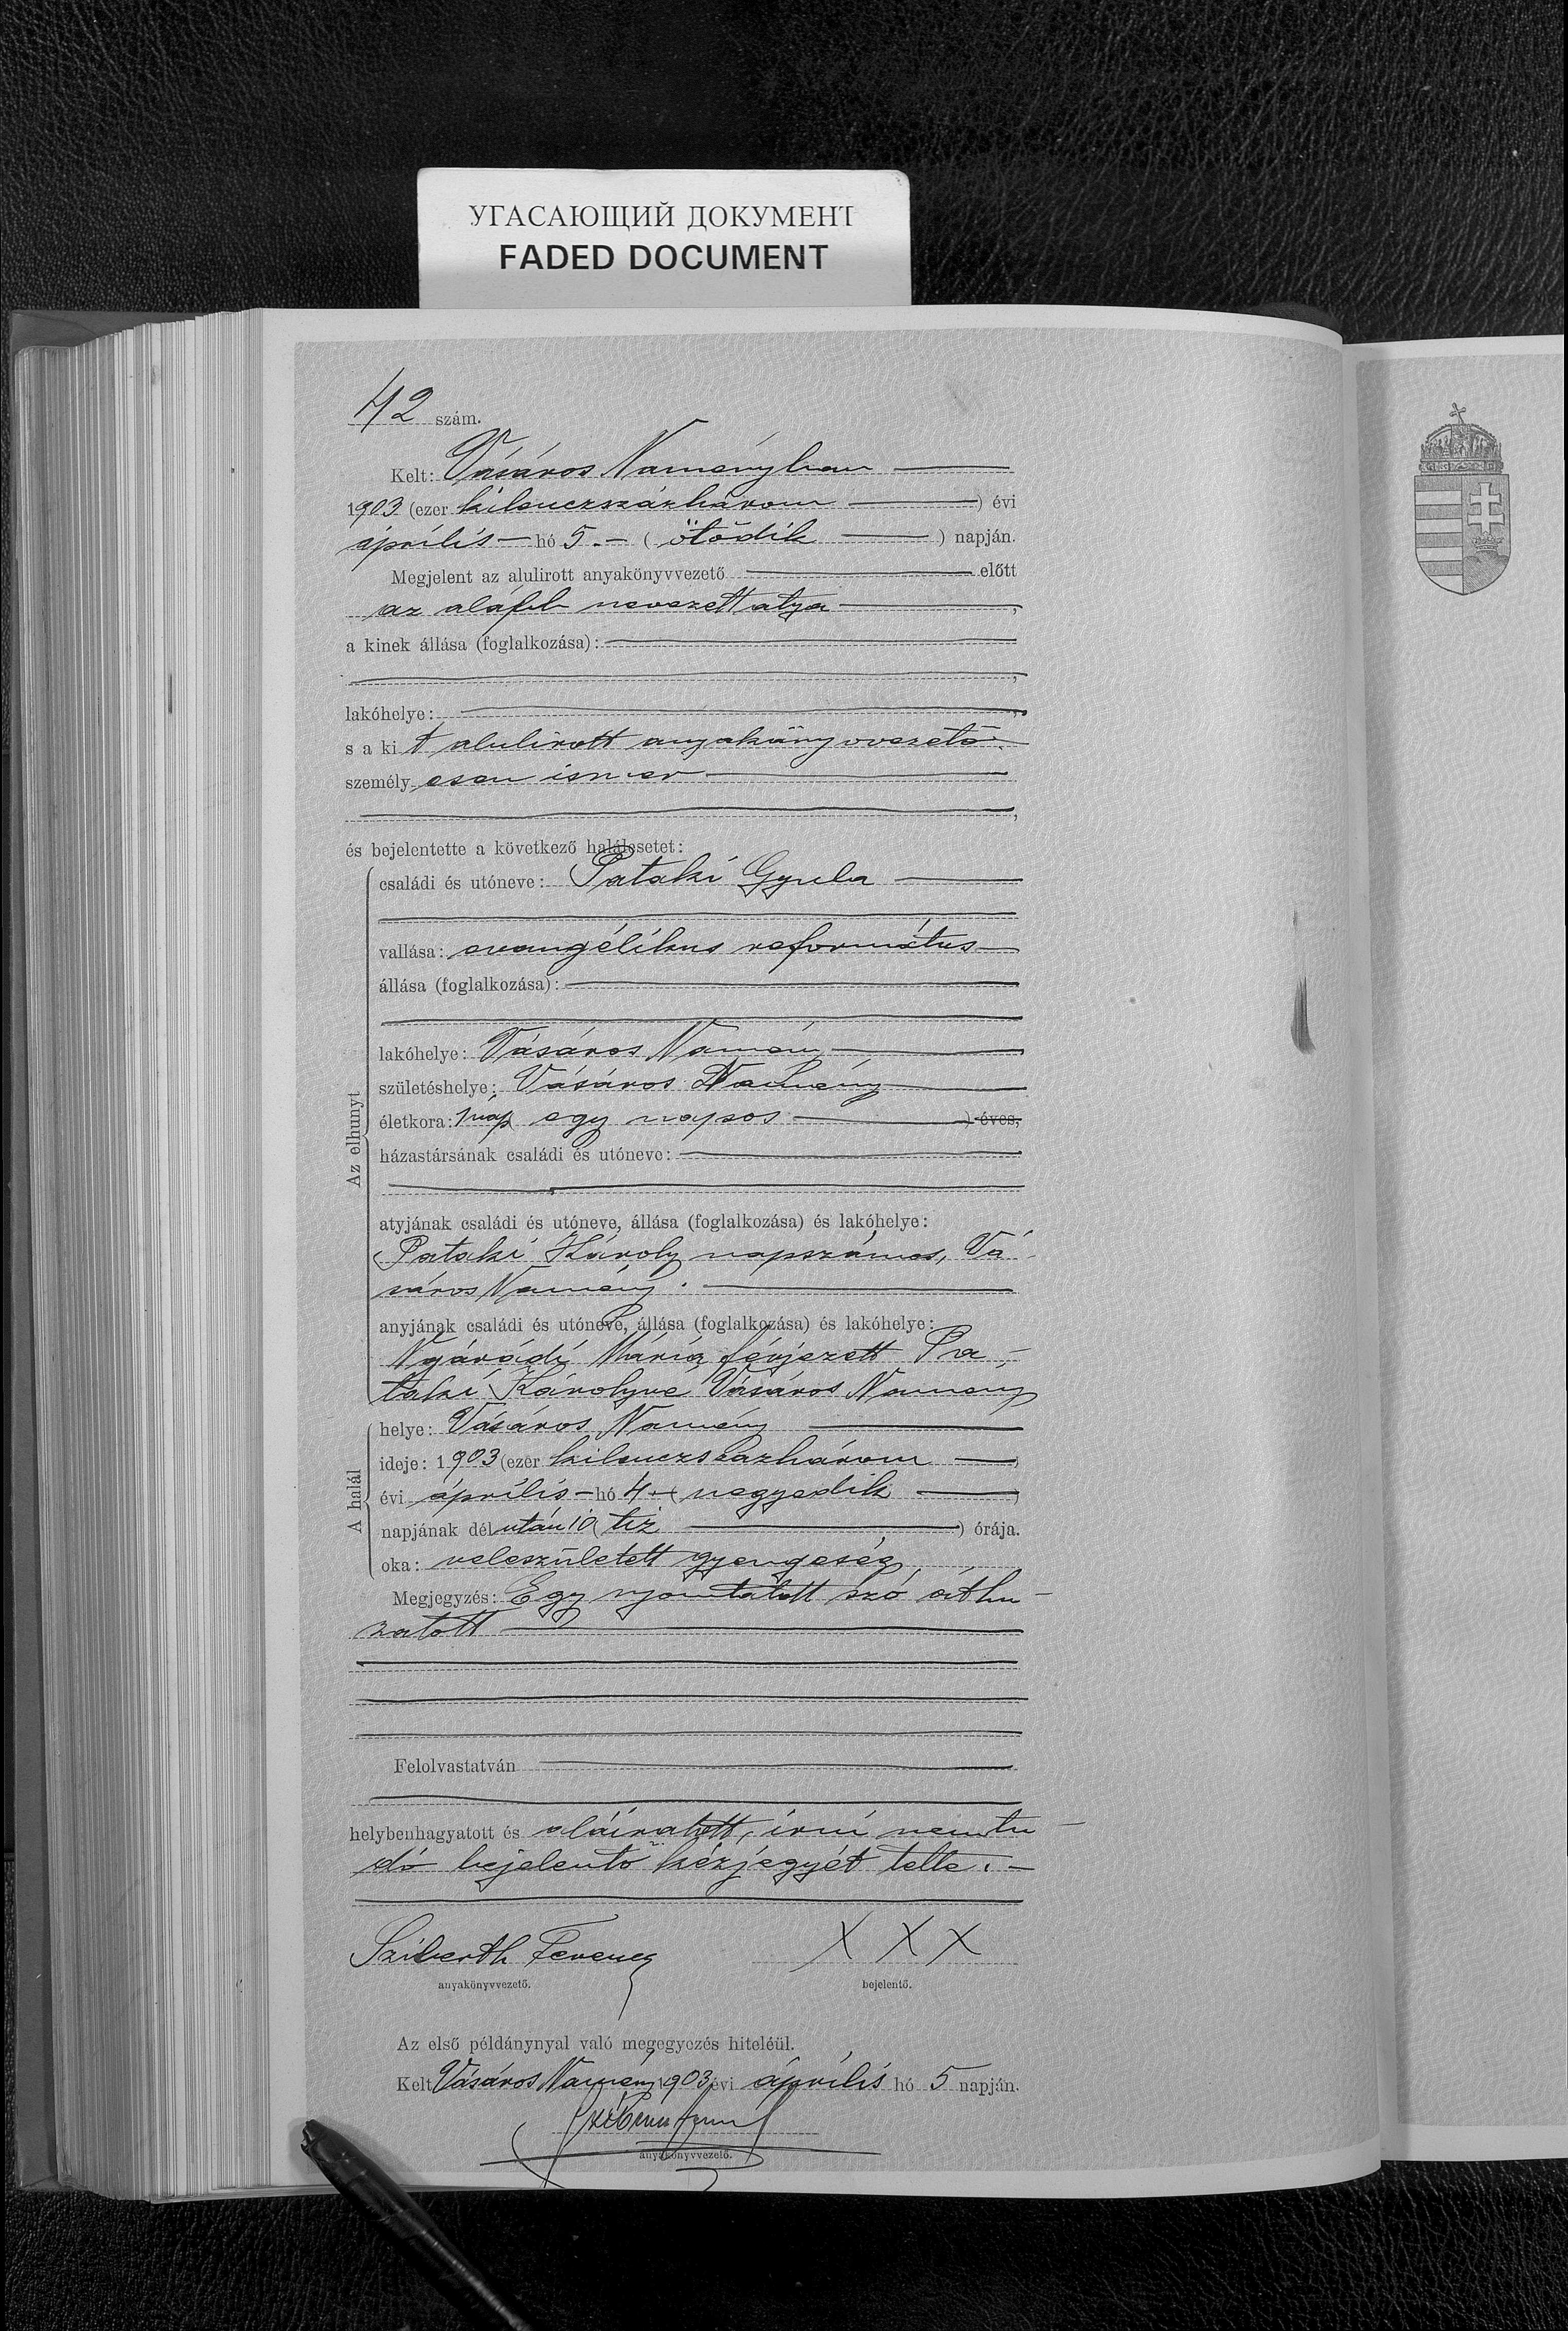 УГАСАЮЩИЙ ДОКУМЕНТ
FADED DOCUMENT
42 szám.
Kelt: Vásáros Naményban
1903 (ezer kilenczszázhárom ) évi
április hó 5. ( ötödik ) napján.
Megjelent az alulirott anyakönyvvezető előtt
az alább nevezett atya ,
a kinek állása (foglalkozása):
,
lakóhelye: ,
s a kit alulírott anyakönyvvezető
személyesen ismer
,
és bejelentette a következő halálesetet:
Az elhunyt
családi és utóneve: Pataki Gyula
vallása: evangélikus református
állása (foglalkozása):
lakóhelye: Vásáros Namény
születéshelye: Vásáros Namény
életkora: 1 nap ( egy napos ) éves,
házastársának családi és utóneve:
atyjának családi és utóneve, állása (foglalkozása) és lakóhelye:
Pataki Károly napszámos, Vá-
sáros Namény.
anyjának családi és utóneve, állása (foglalkozása) és lakóhelye:
Nyárádi Mária férjezett Pa-
taki Károlyné Vásáros Namény
A halál
helye: Vásáros Namény
ideje: 1903 (ezer kilenczszázhárom )
évi április hó 4 ( negyedik )
napjának délután 10 ( tíz ) órája.
oka: veleszületett gyengeség
Megjegyzés: Egy nyomtatott szó áthu-
zatott
Felolvastatván
helybenhagyatott és aláíratott, írni nem tu-
dó bejelentő kézjegyét tette.
Sziberth Ferencz X X X
anyakönyvvezető. bejelentő.
Az első példánynyal való megegyezés hiteléül.
Kelt Vásáros Namény 1903 évi április hó 5 napján.
anyakönyvvezető.